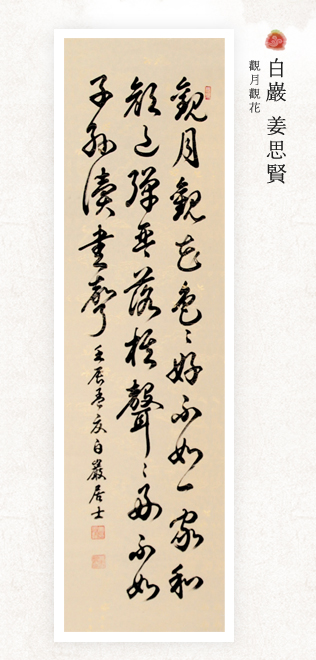 白巖 姜思賢
觀月觀花
觀月觀花色〻好不如一家和
顔色彈琴落棋聲〻好不如
子孫讀書聲 壬辰 白巖居士